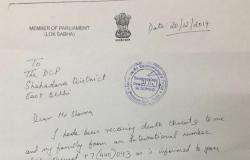 MEMBER OF PARLIAMENT
(LOK SABHA)
Date: 20/12/2019
To
The DCP
Shahdara District
East Delhi
Dear Mr Sharma
I have been receiving death threats to me
and my family from an International number
as is informed to you